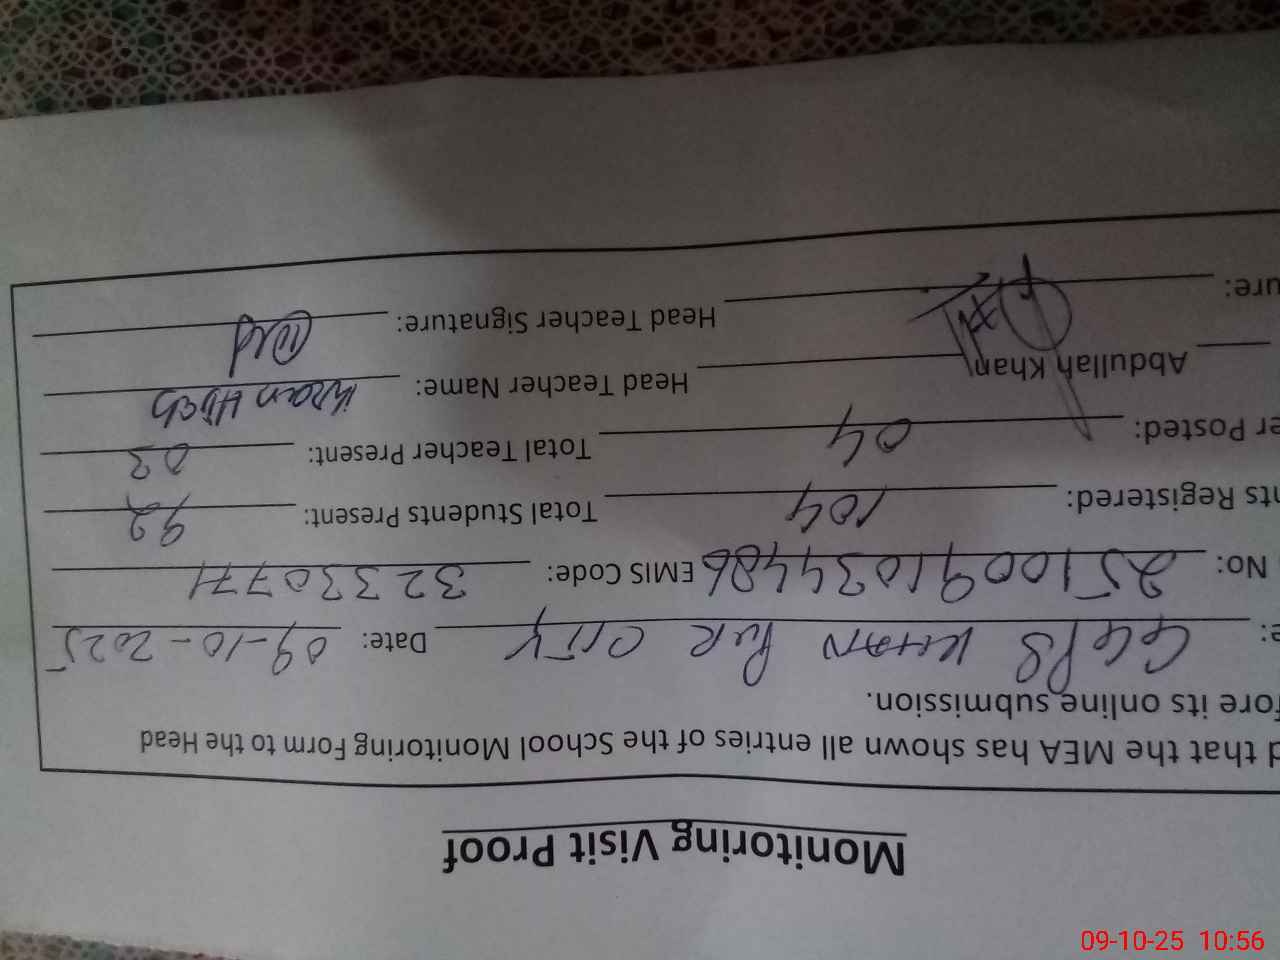 Monitoring Visit Proof
d that the MEA has shown all entries of the School Monitoring Form to the Head
fore its online submission.
e: GGPS KHAN PUR CITY Date: 09-10-2025
No: 2510091034486 EMIS Code: 32330771
nts Registered: 104 Total Students Present: 92
er Posted: 04 Total Teacher Present: 03
Abdullah Khan Head Teacher Name:
ure: Head Teacher Signature:
09-10-25 10:56